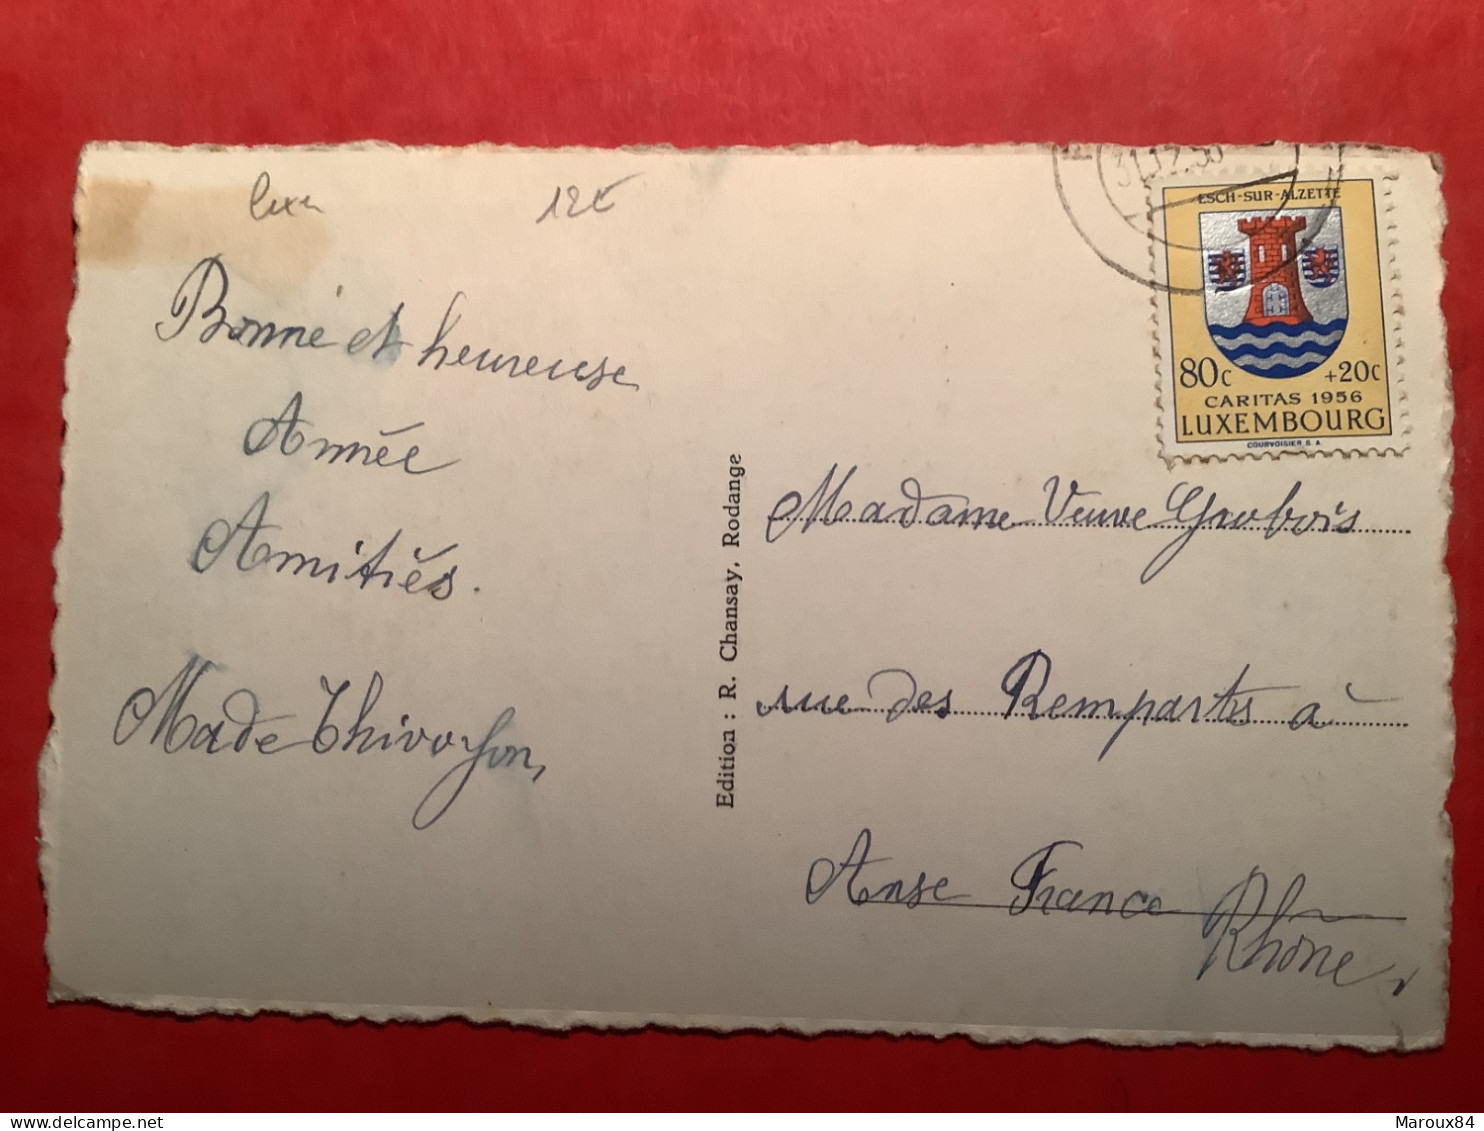 luxe
12€
Bonne et heureuse
Année
Amitiés.
Made Thivoyon,
Edition : R. Chansay, Rodange
31.12.56
ESCH-SUR-ALZETTE
80c +20c
CARITAS 1956
LUXEMBOURG
COURVOISIER S.A.
Madame Veuve Grobois
rue des Remparts à
Anse France
Rhône
Maroux84